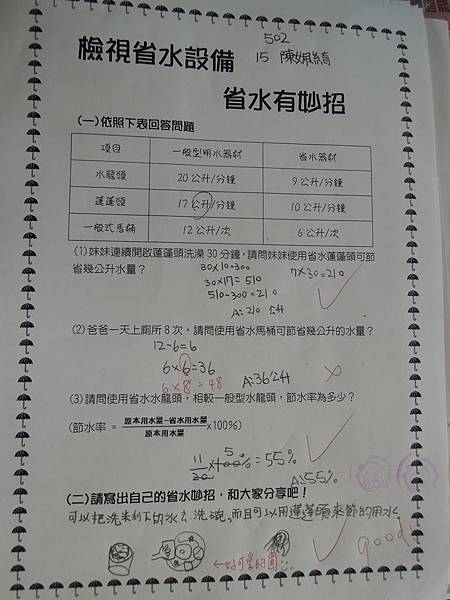 502
15 陳婉綺
檢視省水設備
省水有妙招
(一)依照下表回答問題
項目 一般型用水器材 省水器材
水龍頭 20公升/分鐘 9公升/分鐘
蓮蓬頭 17公升/分鐘 10公升/分鐘
一般式馬桶 12公升/次 6公升/次
(1)妹妹連續開啟蓮蓬頭洗澡30分鐘,請問妹妹使用省水蓮蓬頭可節
省幾公升水量?
30×10=300
30×17=510
7×30=210
510-300=210
A:210公升
(2)爸爸一天上廁所8次,請問使用省水馬桶可節省幾公升的水量?
12-6=6
6×6=36
6×8=48
A:36公升
(3)請問使用省水水龍頭,相較一般型水龍頭,節水率為多少?
(節水率=原本用水量-省水用水量/原本用水量×100%)
11/20×100%=55%
5
A:55%
(二)請寫出自己的省水妙招,和大家分享吧!
可以把洗米剩下的水去洗碗,而且可以用蓮蓬頭來節約用水
←好可愛的圖
good